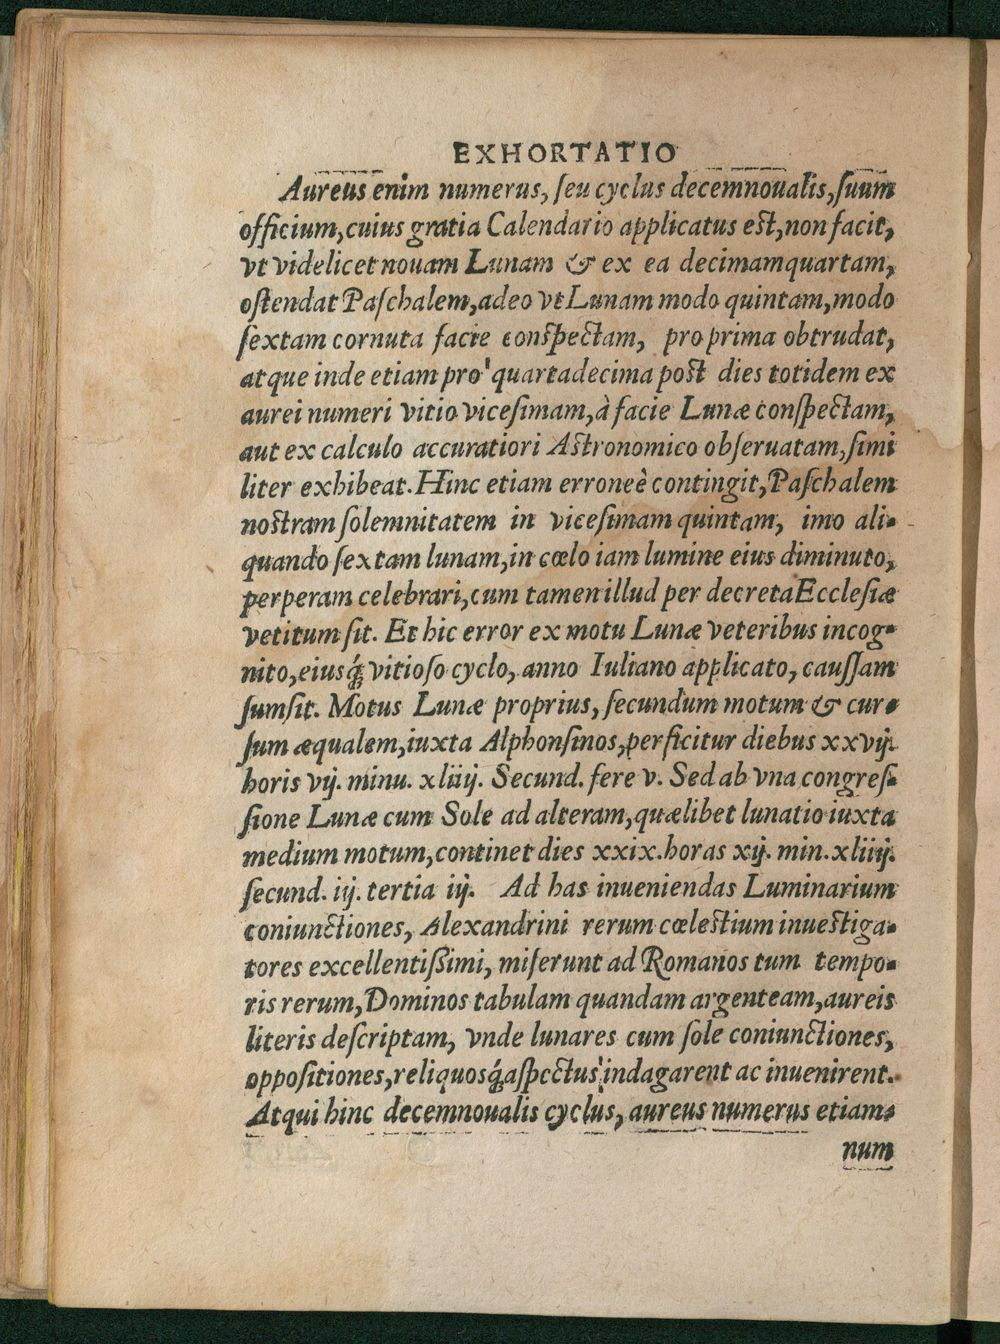 EXHORTATIO
Aureus enim numerus, ſeu cyclus decemnoualis, ſuum
officium, cuius gratia Calendario applicatus eſt, non facit,
vt videlicet nouam Lunam & ex ea decimamquartam,
oſtendat Paſchalem, adeo vt Lunam modo quintam, modo
ſextam cornuta facie conſpectam, pro prima obtrudat,
atque inde etiam pro quartadecima poſt dies totidem ex
aurei numeri vitio viceſimam, à facie Lunæ conſpectam,
aut ex calculo accuratiori Aſtronomico obſeruatam, ſimi
liter exhibeat. Hinc etiam erroneè contingit, Paſchalem
noſtram ſolemnitatem in viceſimam quintam, imo ali-
quando ſextam lunam, in cœlo iam lumine eius diminuto,
perperam celebrari, cum tamen illud per decreta Eccleſiæ
vetitum ſit. Et hic error ex motu Lunæ veteribus incog-
nito, eiusq́; vitioſo cyclo, anno Iuliano applicato, cauſſam
ſumſit. Motus Lunæ proprius, ſecundum motum & cur-
ſum æqualem, iuxta Alphonſinos, perficitur diebus xxvij.
horis vij. minu. xliij. Secund. fere v. Sed ab vna congreſ-
ſione Lunæ cum Sole ad alteram, quælibet lunatio iuxta
medium motum, continet dies xxix. horas xij. min. xliiij.
ſecund. iij. tertia iij. Ad has inueniendas Luminarium
coniunctiones, Alexandrini rerum cœleſtium inueſtiga-
tores excellentißimi, miſerunt ad Romanos tum tempo-
ris rerum, Dominos tabulam quandam argenteam, aureis
literis deſcriptam, vnde lunares cum ſole coniunctiones,
oppoſitiones, reliquosq́; aſpectus indagarent ac inuenirent.
Atqui hinc decemnoualis cyclus, aureus numerus etiam-
num